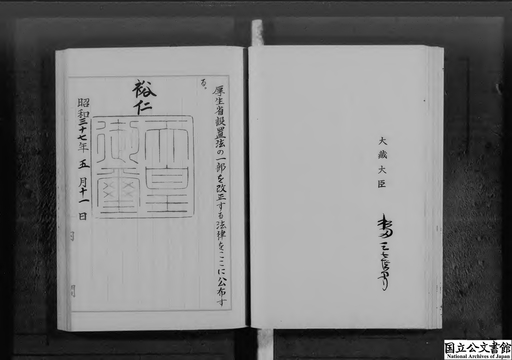 大蔵大臣
厚生省設置法の一部を改正する法律をここに公布す
る。
裕仁
天皇
御璽
昭和三十七年 五 月十一 日
国立公文書館
National Archives of Japan